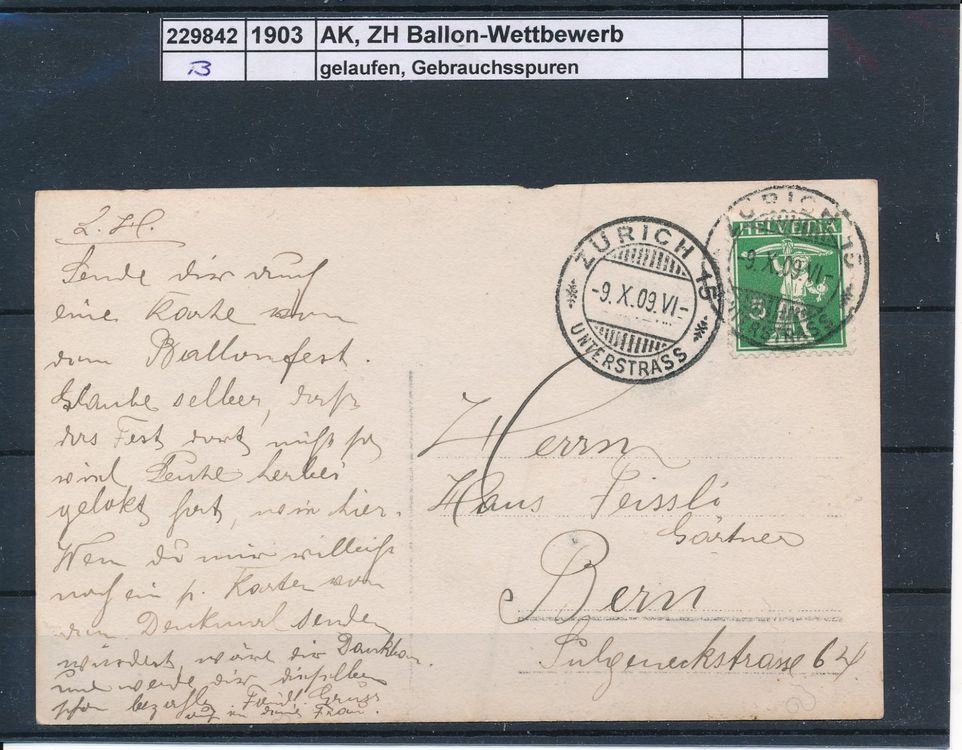 229842 1903 AK, ZH Ballon-Wettbewerb
B gelaufen, Gebrauchsspuren
L. H.
Sende dir auch
eine Karte von
dem Ballonfest.
Glaube selber, daß
das Fest dort nicht so
viel Leute herbei
gelokt hat, wie hier.
Wen du mir villeicht
noch ein p. Karten vom
dem Denkmal senden
würdest, wäre dir Dankbar.
und werde dir dieselben
schon bezahlen Freundl. Gruss
auf in deine Frau.
ZÜRICH 15
-9.X.09.VI-
UNTERSTRASS
ZÜRICH 15
HELVETIA
-9.X.09.VI-
5
UNTERSTRASS
Herrn
Hans Feissli
Gärtner
Bern
Sulgeneckstrasse 64